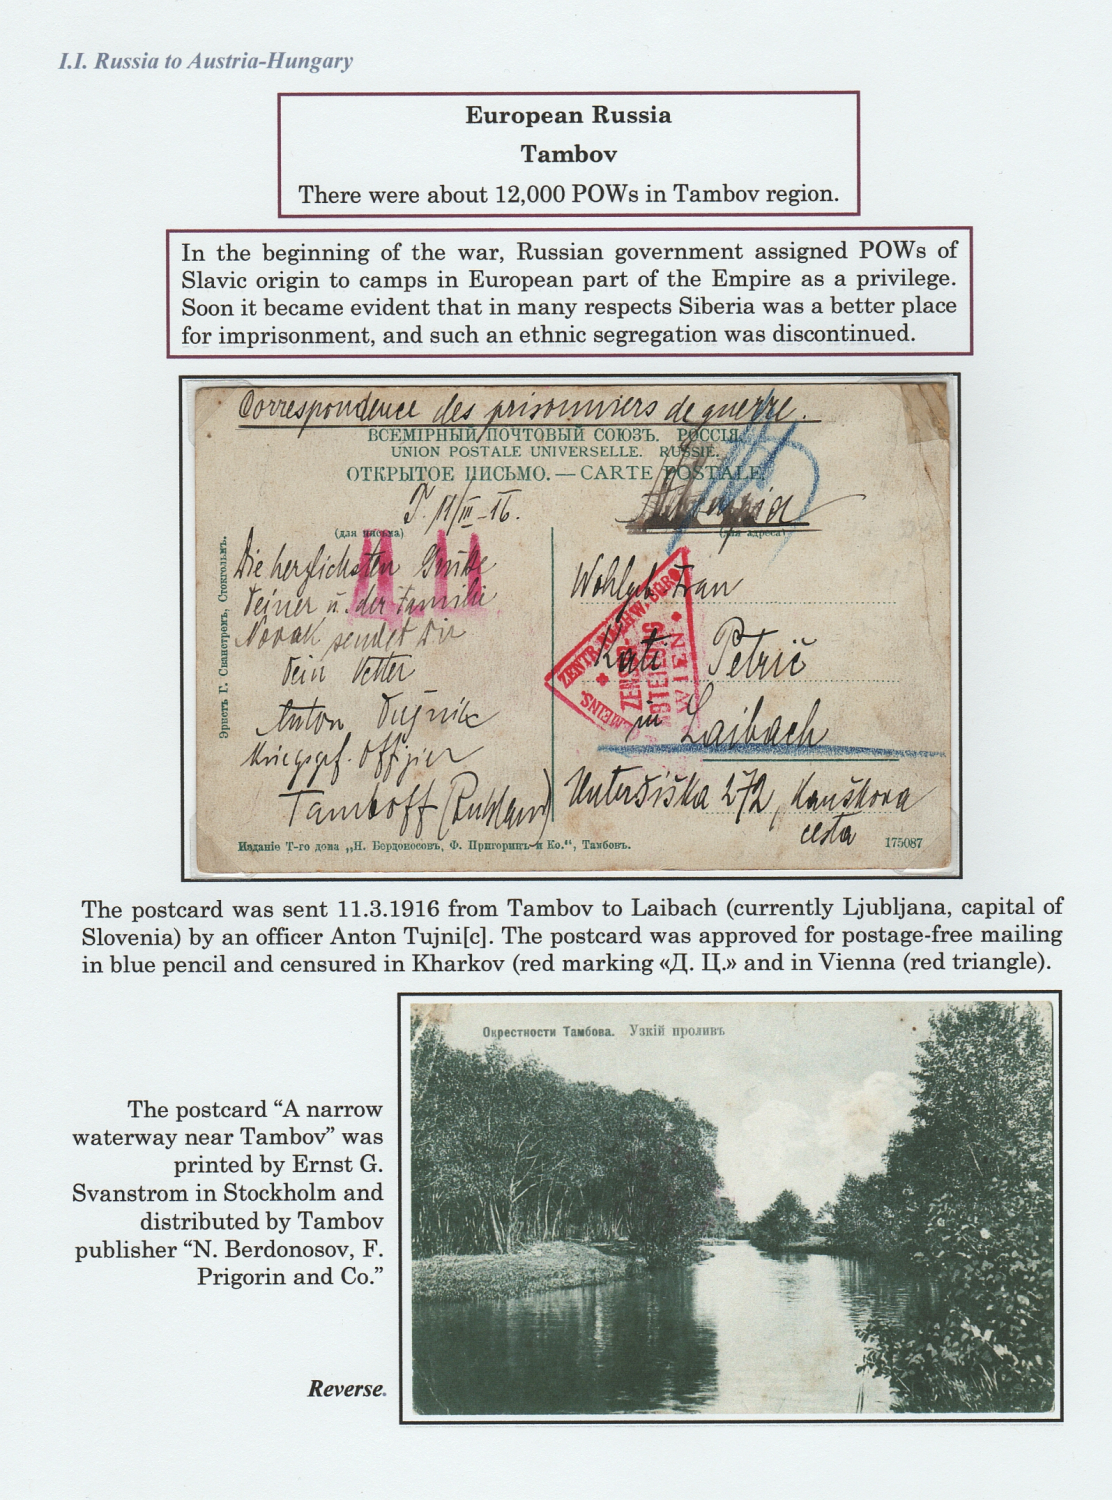 I.I. Russia to Austria-Hungary
European Russia
Tambov
There were about 12,000 POWs in Tambov region.
In the beginning of the war, Russian government assigned POWs of
Slavic origin to camps in European part of the Empire as a privilege.
Soon it became evident that in many respects Siberia was a better place
for imprisonment, and such an ethnic segregation was discontinued.
Correspondence des prisonniers de guerre.
ВСЕМІРНЫЙ ПОЧТОВЫЙ СОЮЗЪ. РОССІЯ.
UNION POSTALE UNIVERSELLE. RUSSIE.
ОТКРЫТОЕ ПИСЬМО. — CARTE POSTALE
T. 11/III-16.
(для письма)
(для адреса)
Die herzlichsten Grüße
Deiner u. der Familie
Novak sendet Dir
Dein Vetter
Anton Tujnic
Kriegsgef. Offizier
Tamboff (Rußland)
Д. Ц.
Wohlgeb Frau
Kati Petrič
in Laibach
Unteršiška 272,
cesta
ZENSUR
ABTEILUNG
WIEN
Эрнстъ Г. Сванстремъ, Стокгольмъ.
Изданіе Т-го дома „Н. Бердоносовъ, Ф. Пригоринъ и Ко.“, Тамбовъ.
175087
The postcard was sent 11.3.1916 from Tambov to Laibach (currently Ljubljana, capital of
Slovenia) by an officer Anton Tujni[c]. The postcard was approved for postage-free mailing
in blue pencil and censured in Kharkov (red marking «Д. Ц.» and in Vienna (red triangle).
Окрестности Тамбова. Узкій проливъ
The postcard “A narrow
waterway near Tambov” was
printed by Ernst G.
Svanstrom in Stockholm and
distributed by Tambov
publisher “N. Berdonosov, F.
Prigorin and Co.”
Reverse.